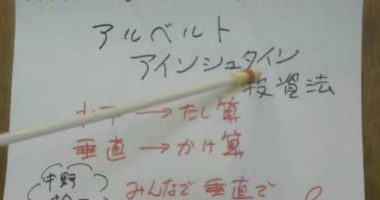 アルベルト
アインシュタイン
投資法
水平→たし算
垂直→かけ算
中野
みんなで垂直で